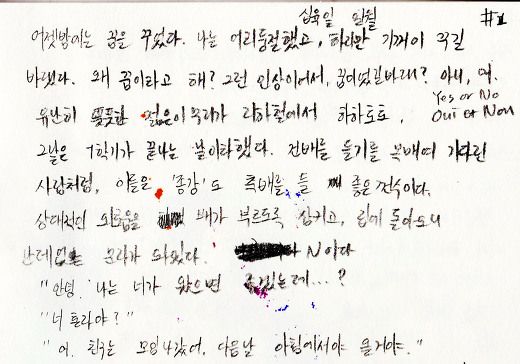 십육일 원철 #1
어젯밤에는 꿈을 꾸었다. 나는 어리둥절했고, 하지만 기꺼이 속길
바랬다. 왜 꿈이라고 해? 그런 인상이어서, 꿈이었길 바래? 아니, 예.
Yes or No
유난히 젊은이 무리가 지하철에서 하하호호, Oui et Non
그날은 1학기가 끝나는 날이라했다. 건배를 들기를 기다린
사람처럼, 이들은 '종강'도 축배를 들 좋은 건수이다.
상대적인 외로움을 배가 부르도록 삼키고, 집에 돌아오니
난데없는 문자가 와있다. N이다
"안녕. 나는 너가 왔으면 좋겠는데...?
"너 혼자야?"
"어. 친구는 모임 나갔어, 다음날 아침에서야 올거야."